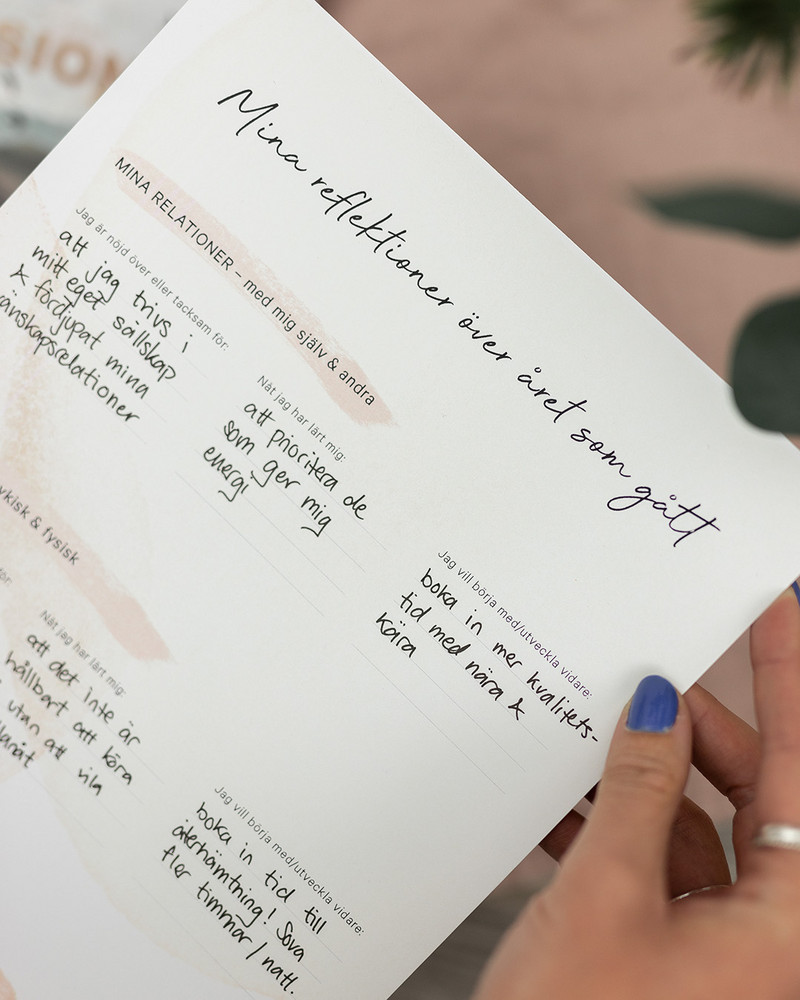 Mina reflektioner över året som gått
MINA RELATIONER – med mig själv & andra
Jag är nöjd över eller tacksam för:
att jag trivs i
mitt eget sällskap
& fördjupat mina
vänskapsrelationer
Nåt jag har lärt mig:
att prioritera de
som ger mig
energi
Jag vill börja med/utveckla vidare:
boka in mer kvalitets-
tid med nära &
kära
& fysisk
för:
Nåt jag har lärt mig:
att det inte är
hållbart att köra
utan att vila
Jag vill börja med/utveckla vidare:
boka in tid till
återhämtning! Sova
fler timmar/natt.